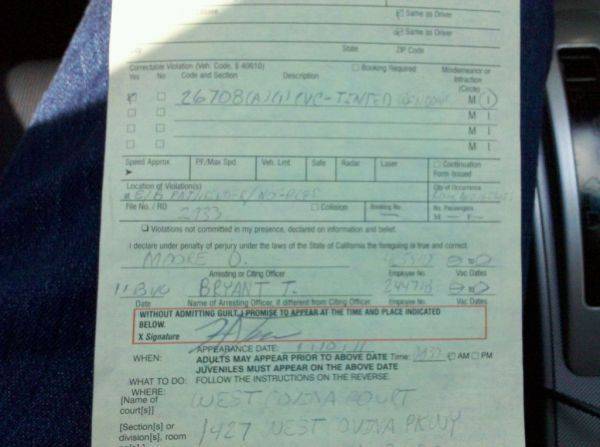 Same as Driver
Same as Driver
State ZIP Code
Correctable Violation (Veh. Code, § 40610) Booking Required Misdemeanor or
Yes No Code and Section Description Infraction
(Circle)
26708(A)(1) CVC-TINTED WINDOW M I
M I
M I
M I
Speed Approx. PF/Max Spd Veh. Lmt Safe Radar Laser Continuation
Form Issued
Location of Violation(s) City of Occurrence
File No. / RD 2933 Collision No. Passengers
M F
Violations not committed in my presence, declared on information and belief.
I declare under penalty of perjury under the laws of the State of California the foregoing is true and correct.
MOORE D.
Arresting or Citing Officer Employee No. Vac Dates
BRYANT T.
Date Name of Arresting Officer, if different from Citing Officer Employee No. Vac Dates
WITHOUT ADMITTING GUILT, I PROMISE TO APPEAR AT THE TIME AND PLACE INDICATED
BELOW.
X Signature
APPEARANCE DATE:
WHEN: ADULTS MAY APPEAR PRIOR TO ABOVE DATE Time: AM PM
JUVENILES MUST APPEAR ON THE ABOVE DATE
WHAT TO DO: FOLLOW THE INSTRUCTIONS ON THE REVERSE.
WHERE:
[Name of WEST COVINA COURT
court[s]]
[Section[s] or 1427 WEST COVINA PKWY
division[s], room